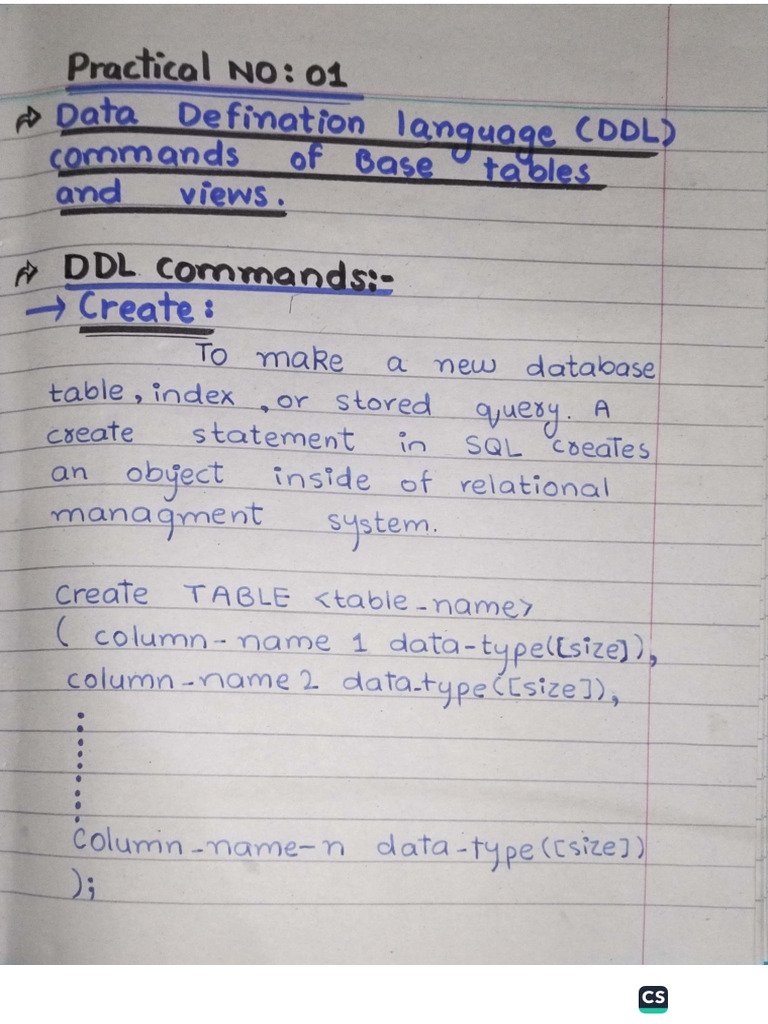 Practical NO: 01
⇒ Data Defination language (DDL)
commands of Base tables
and views.
⇒ DDL commands:-
→ Create:
To make a new database
table, index, or stored query. A
create statement in SQL creates
an obyject inside of relational
managment system.
Create TABLE <table_name>
( column-name 1 data-type([size]),
column_name 2 data-type([size]),
column_name-n data-type([size])
);
CS